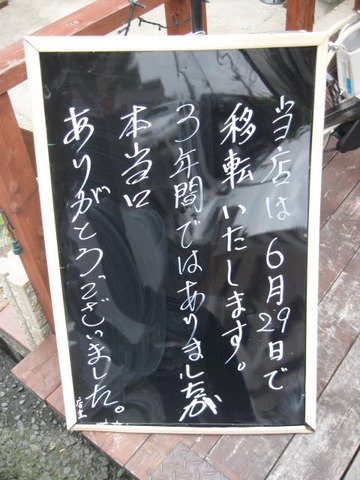 当店は6月29日で
移転いたします。
3年間ではありましたが
本当に
ありがとうございました。
店主